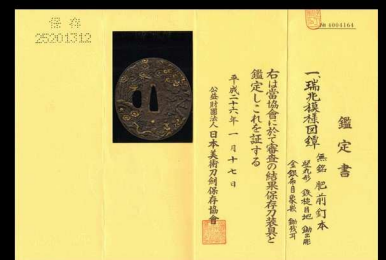 保存
25201312
№ 4004164
鑑定書
一、瑞兆模様図鐔
無銘 肥前釘本
金銀布目象嵌
右は當協會に於て審査の結果保存刀装具と
鑑定しこれを証する
平成二十六年一月十七日
公益財団法人日本美術刀剣保存協會